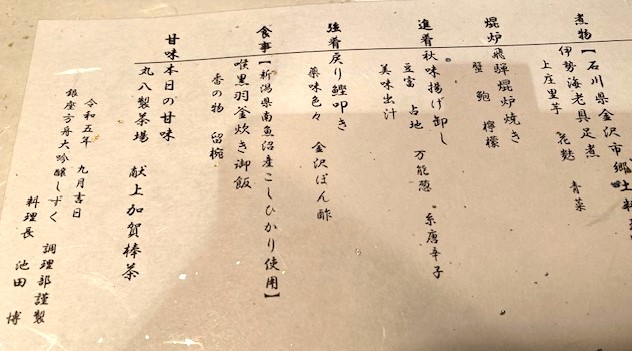 煮物【石川県金沢市郷土料理
伊勢海老具足煮
上庄里芋 花麩 青菜
焜炉 飛騨焜炉焼き
蟹 鮑 檸檬
進肴 秋味揚げ卸し
豆富 占地 万能葱 糸唐辛子
美味出汁
強肴 戻り鰹叩き
薬味色々 金沢ぽん酢
食事【新潟県南魚沼産こしひかり使用】
喉黒羽釜炊き御飯
香の物 留椀
甘味 本日の甘味
丸八製茶場 献上加賀棒茶
令和五年 九月吉日
銀座方舟大吟醸しずく 調理部謹製
料理長 池田 博